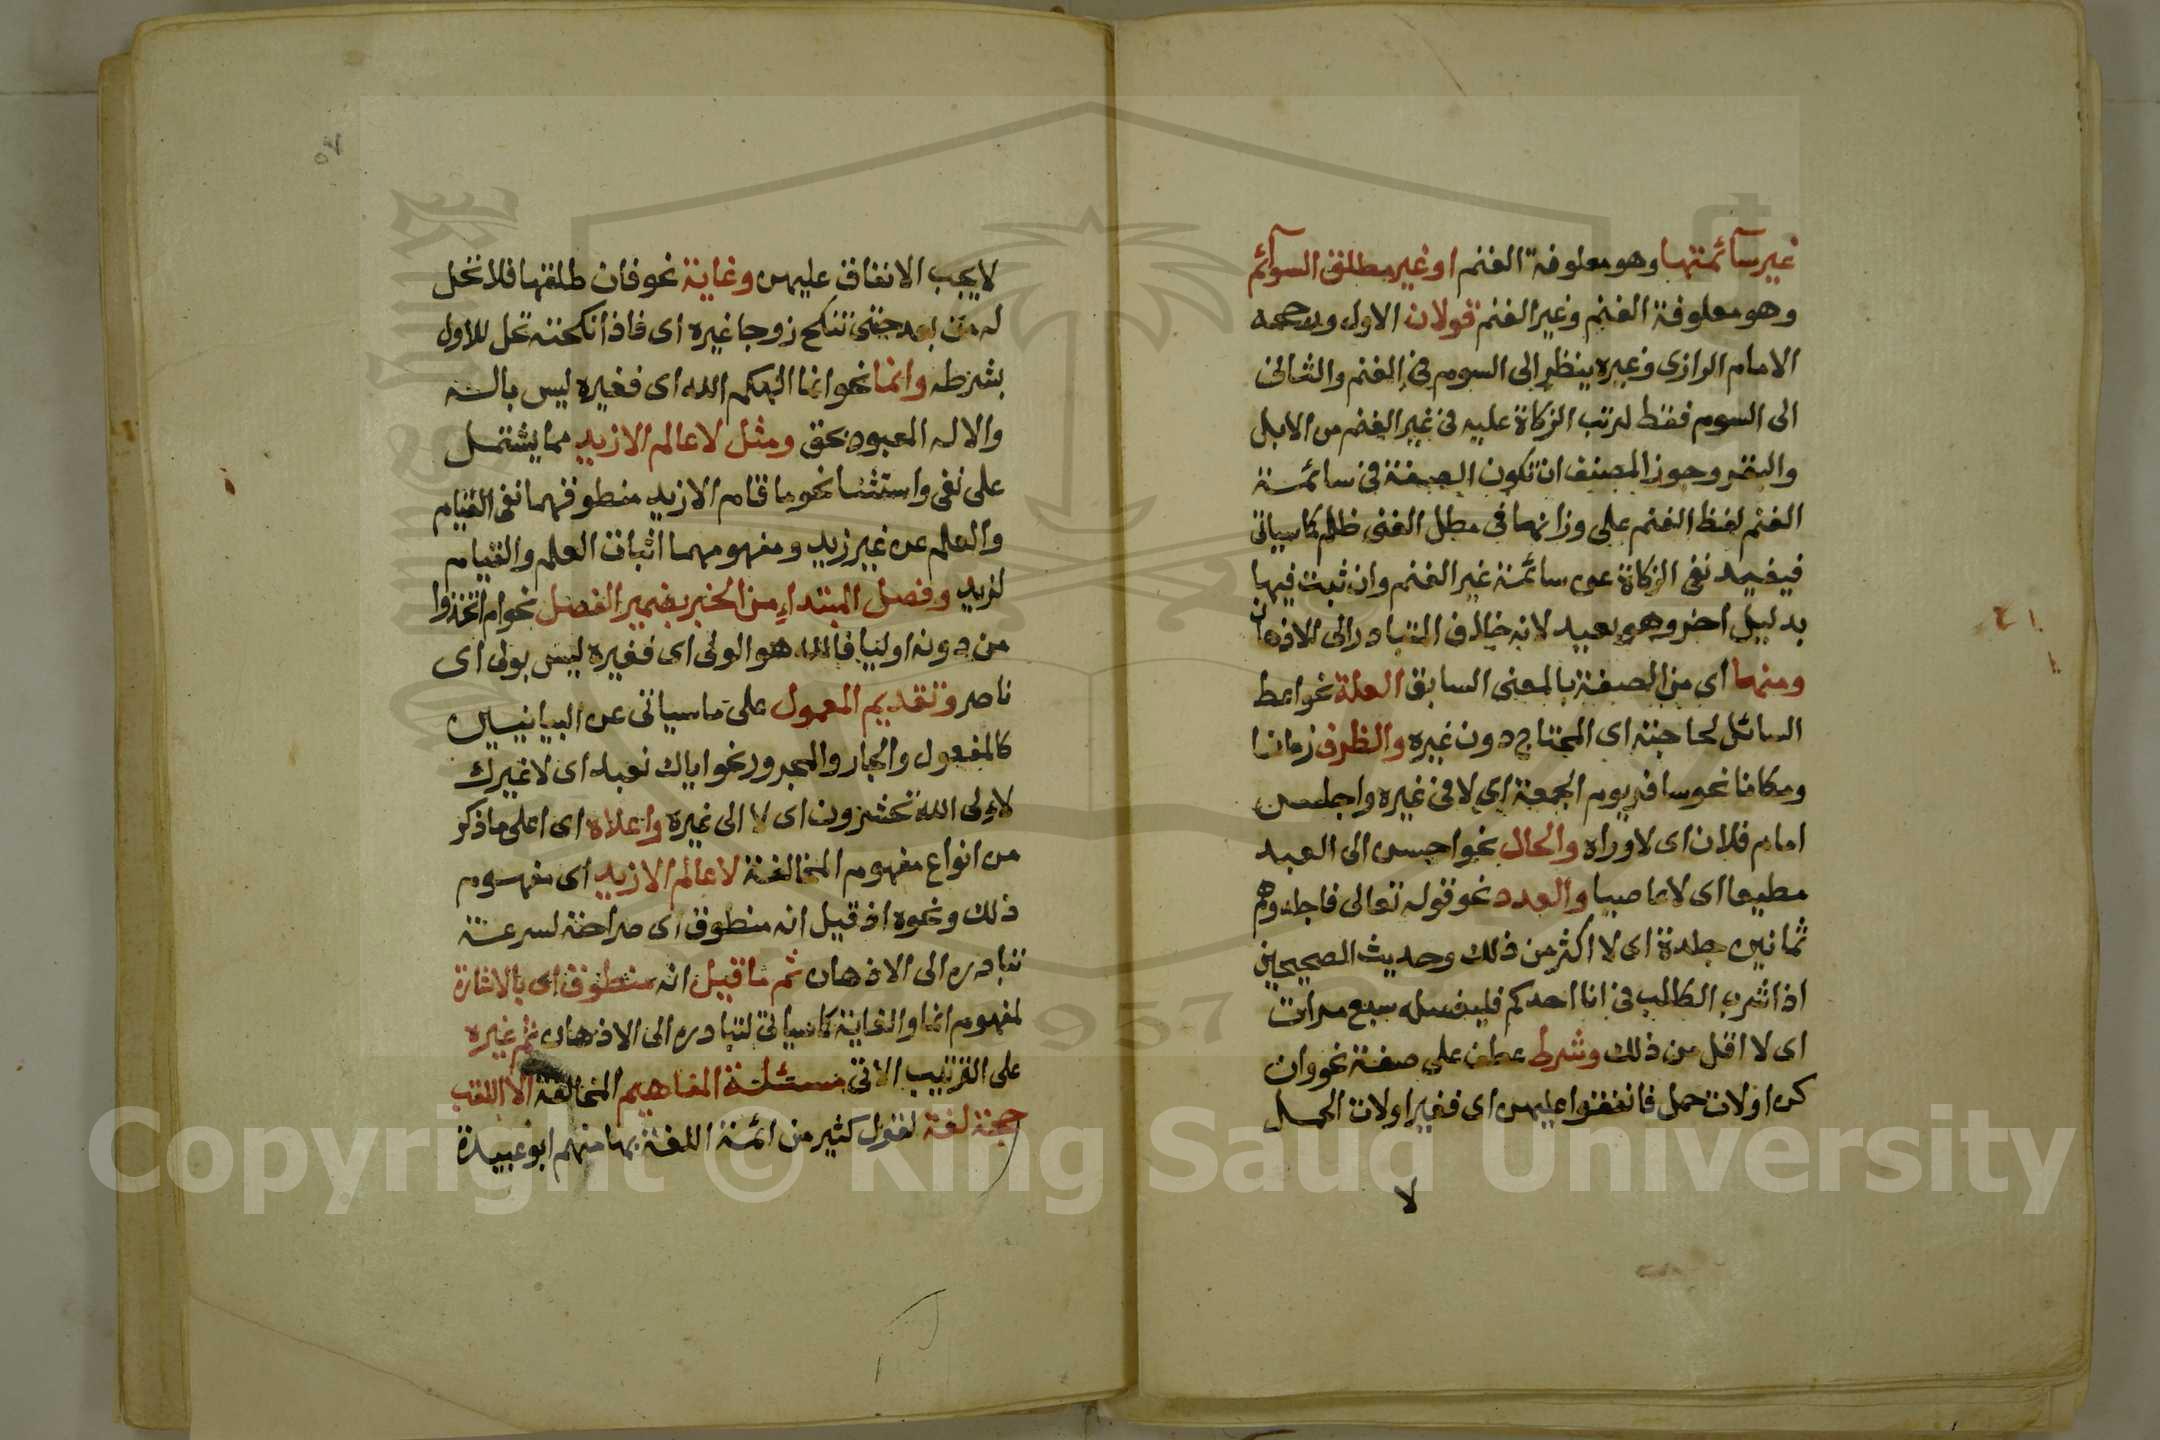 غير سآئمتها وهو معلوفة الغنم او غير مطلق السوآئم
وهو معلوفة الغنم وغير الغنم قولان الاول ورجحه
الامام الرازى وغيره ينظر الى السوم فى الغنم والثانى
الى السوم فقط لترتب الزكاة عليه فى غير الغنم من الابل
والبقر وجوز المصنف ان تكون الصفة فى سائمة
الغنم لفظ الغنم على وزانها فى مطل الغنى ظلم كما سياتى
فيفيد نفى الزكاة عن سائمة غير الغنم وان ثبت فيها
بدليل اخر وهو بعيد لانه خلاف المتبادر الى الاذهان
ومنها اى من الصفة بالمعنى السابق العلة نحو اعط
السائل لحاجته اى المحتاج دون غيره والظرف زمانا
ومكانا نحو سافر يوم الجمعة اى لا فى غيره واجلس
امام فلان اى لا وراه والحال نحو احسن الى العبد
مطيعا اى لا عاصيا والعدد نحو قوله تعالى فاجلدوهم
ثمانين جلدة اى لا اكثر من ذلك وحديث الصحيحين
اذا شرب الكلب فى انا احدكم فليغسله سبع مرات
اى لا اقل من ذلك وشرط عطف على صفة نحو وان
كن اولات حمل فانفقوا عليهن اى فغير اولات الحمل
لا
٥٧
لا يجب الانفاق عليهن وغاية نحو فان طلقها فلا تحل
له من بعد حتى تنكح زوجا غيره اى فاذا نكحته تحل للاول
بشرطه وانما نحو انما الهكم الله اى فغيره ليس باله
والاله المعبود بحق ومثل لا عالم الا زيد مما يشتمل
على نفى واستثنا نحو ما قام الا زيد منطوقهما نفى القيام
والعلم عن غير زيد ومفهومهما اثبات العلم والقيام
لزيد وفصل المبتداء من الخبر بضمير الفصل نحو ام اتخذوا
من دونه اوليا فالله هو الولى اى فغيره ليس بولى اى
ناصر وتقديم المعمول على ما سياتى عن البيانيين
كالمفعول والجار والمجرور نحو اياك نعبد اى لا غيرك
لالى الله تحشرون اى لا الى غيره واعلاه اى اعلى ما ذكر
من انواع مفهوم المخالفة لا عالم الا زيد اى مفهوم
ذلك ونحوه اذ قيل انه منطوق اى صراحة لسرعة
تبادره الى الاذهان ثم ما قيل انه منطوق اى بالاشارة
لمفهوم انما والغاية كما سياتى لتبادره الى الاذهان ثم غيره
على الترتيب الاتى مسئلة المفاهيم المخالفة الا اللقب
حجة لغة لقول كثير من ائمة اللغة بها منهم ابو عبيدة
Copyright © King Saud University
1957